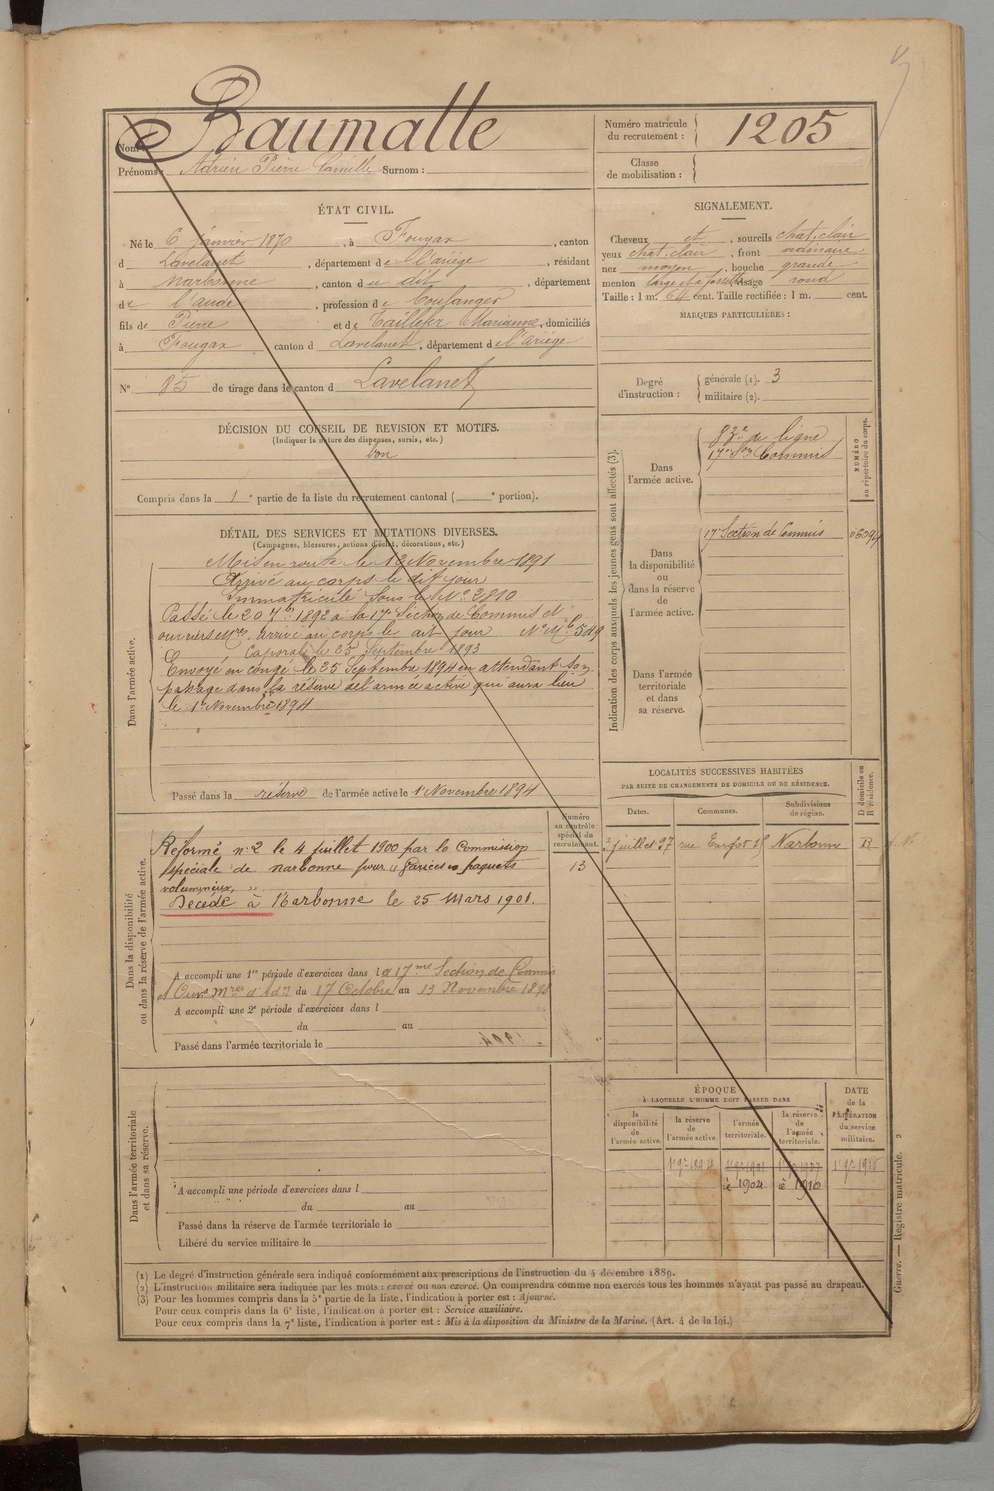 Nom : Baumalle
Prénoms : Adrien Pierre Camille Surnom :
Numéro matricule du recrutement : 1205
Classe de mobilisation :
ÉTAT CIVIL.
Né le 6 janvier 1870, à Fougax, canton
d Lavelanet, département de l'ariège, résidant
à Narbonne, canton du dit, département
de l'aude, profession de boulanger
fils de Pierre et de Taillefer Marianne, domiciliés
à Fougax canton d Lavelanet, département de l'ariège
N° 85 de tirage dans le canton d Lavelanet
SIGNALEMENT.
Cheveux et, sourcils chat. clair
yeux chat. clair, front ordinaire
nez moyen, bouche grande
menton large et à fossette visage rond
Taille : 1 m. 64 cent. Taille rectifiée : 1 m. cent.
MARQUES PARTICULIÈRES :
Degré d'instruction : générale (1). 3
militaire (2).
DÉCISION DU CONSEIL DE REVISION ET MOTIFS.
(Indiquer la nature des dispenses, sursis, etc.)
bon
Compris dans la 1e partie de la liste du recrutement cantonal ( e portion).
DÉTAIL DES SERVICES ET MUTATIONS DIVERSES.
(Campagnes, blessures, actions d'éclat, décorations, etc.)
Dans l'armée active.
Mis en route le 12 Novembre 1891
Arrivé au corps le dit jour
Immatriculé sous le N° 2810
Passé le 20 7bre 1892 à la 17e Section de Commis et
ouvriers Mres arrivé au corps le dit jour N° Mle 549
Caporal le 25 Septembre 1893
Envoyé en congé le 25 Septembre 1894 en attendant son
passage dans la réserve de l'armée active qui aura lieu
le 1er Novembre 1894
Passé dans la réserve de l'armée active le 1er Novembre 1894
Indication des corps auxquels les jeunes gens sont affectés (3).
NUMÉRO au répertoire du corps.
Dans l'armée active.
83e de ligne
17e Son Commis
Dans la disponibilité ou dans la réserve de l'armée active.
17e Section de Commis
Dans l'armée territoriale et dans sa réserve.
LOCALITÉS SUCCESSIVES HABITÉES
PAR SUITE DE CHANGEMENTS DE DOMICILE OU DE RÉSIDENCE.
Dates. Communes. Subdivisions de région. D domicile ou R résidence.
juillet 97 rue Narbonne
Dans la disponibilité ou dans la réserve de l'armée active.
Numéro au contrôle spécial du recrutement.
13
Réformé n° 2 le 4 juillet 1900 par la Commission
spéciale de narbonne pour "varices en paquets
volumineux"
Décédé à Narbonne le 25 mars 1901.
A accompli une 1re période d'exercices dans la 17me Section de Commis
et Ouvrs Mres d'Adon du 17 Octobre au 13 Novembre
A accompli une 2e période d'exercices dans l
du au
Passé dans l'armée territoriale le
ÉPOQUE
À LAQUELLE L'HOMME DOIT PASSER DANS
la disponibilité de l'armée active.
la réserve de l'armée active.
l'armée territoriale.
la réserve de l'armée territoriale.
DATE de la LIBÉRATION du service militaire.
1904 1910
Dans l'armée territoriale et dans sa réserve.
A accompli une période d'exercices dans l
du au
Passé dans la réserve de l'armée territoriale le
Libéré du service militaire le
(1) Le degré d'instruction générale sera indiqué conformément aux prescriptions de l'instruction du 4 décembre 1889.
(2) L'instruction militaire sera indiquée par les mots : exercé ou non exercé. On comprendra comme non exercés tous les hommes n'ayant pas passé au drapeau.
(3) Pour les hommes compris dans la 5e partie de la liste, l'indication à porter est : Ajourné.
Pour ceux compris dans la 6e liste, l'indication à porter est : Service auxiliaire.
Pour ceux compris dans la 7e liste, l'indication à porter est : Mis à la disposition du Ministre de la Marine. (Art. 4 de la loi.)
Guerre. — Registre matricule. 2